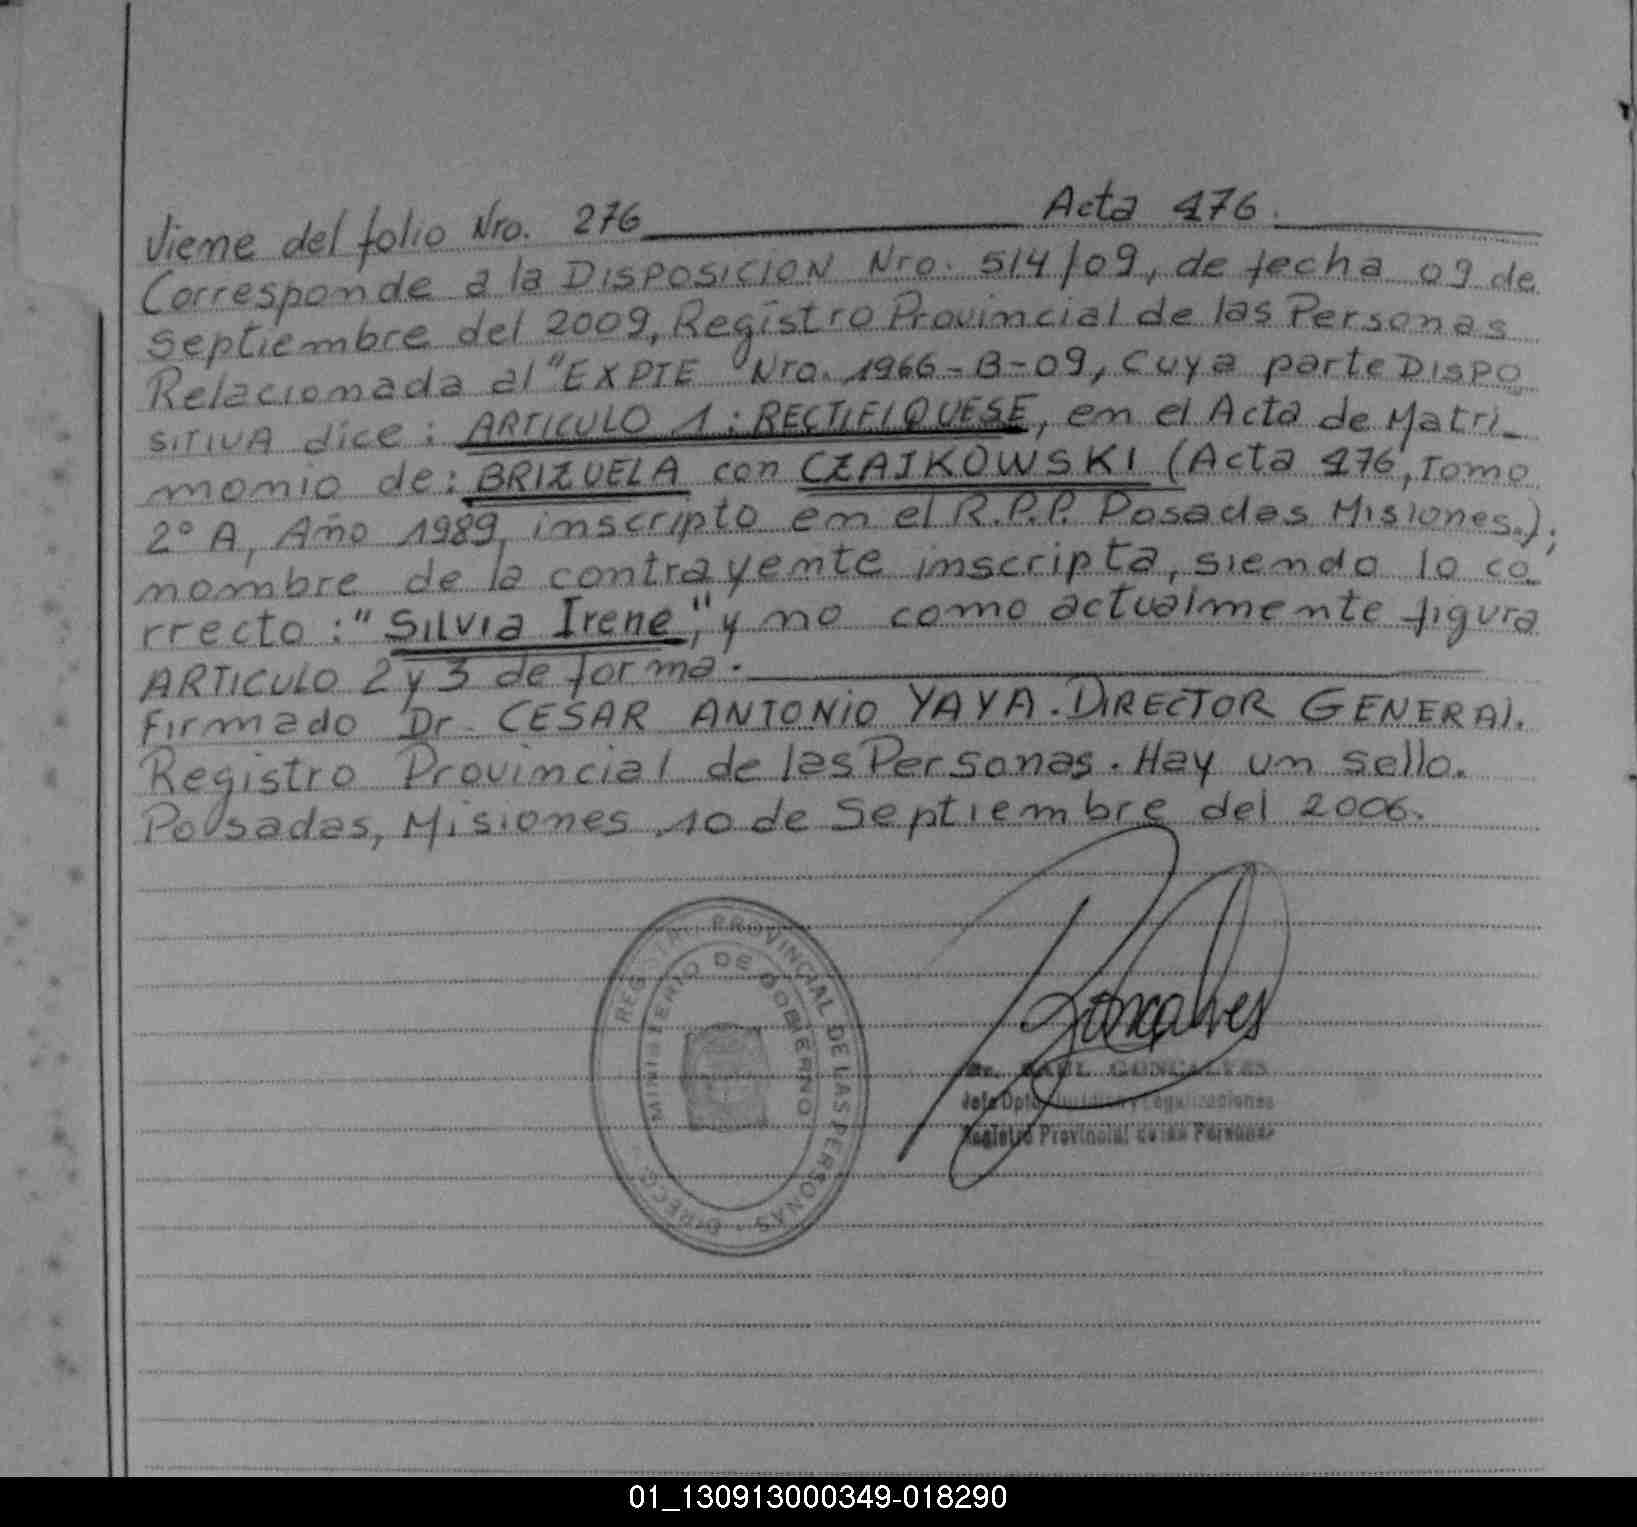 Viene del folio Nro. 276 Acta 476.
Corresponde a la DISPOSICION Nro. 514/09, de fecha 09 de
septiembre del 2009, Registro Provincial de las Personas
Relacionada al "EXPTE Nro. 1966-B-09, cuya parte DISPO
SITIVA dice: ARTICULO 1: RECTIFIQUESE, en el Acta de Matri_
monio de: BRIZUELA con CZAJKOWSKI (Acta 476, Tomo
2° A, Año 1989, inscripto en el R.P.P. Posadas Misiones.);
nombre de la contrayente inscripta, siendo lo co_
rrecto: "Silvia Irene", y no como actualmente figura
ARTICULO 2 y 3 de forma.
Firmado Dr. CESAR ANTONIO YAYA. DIRECTOR GENERAL.
Registro Provincial de las Personas. Hay un sello.
Posadas, Misiones 10 de Septiembre del 2006.
REGISTRO PROVINCIAL DE LAS PERSONAS
MINISTERIO DE GOBIERNO
Goncalves
Dr. RAUL GONCALVES
Jefe Dpto. Legalizaciones
Registro Provincial de las Personas
01_130913000349-018290